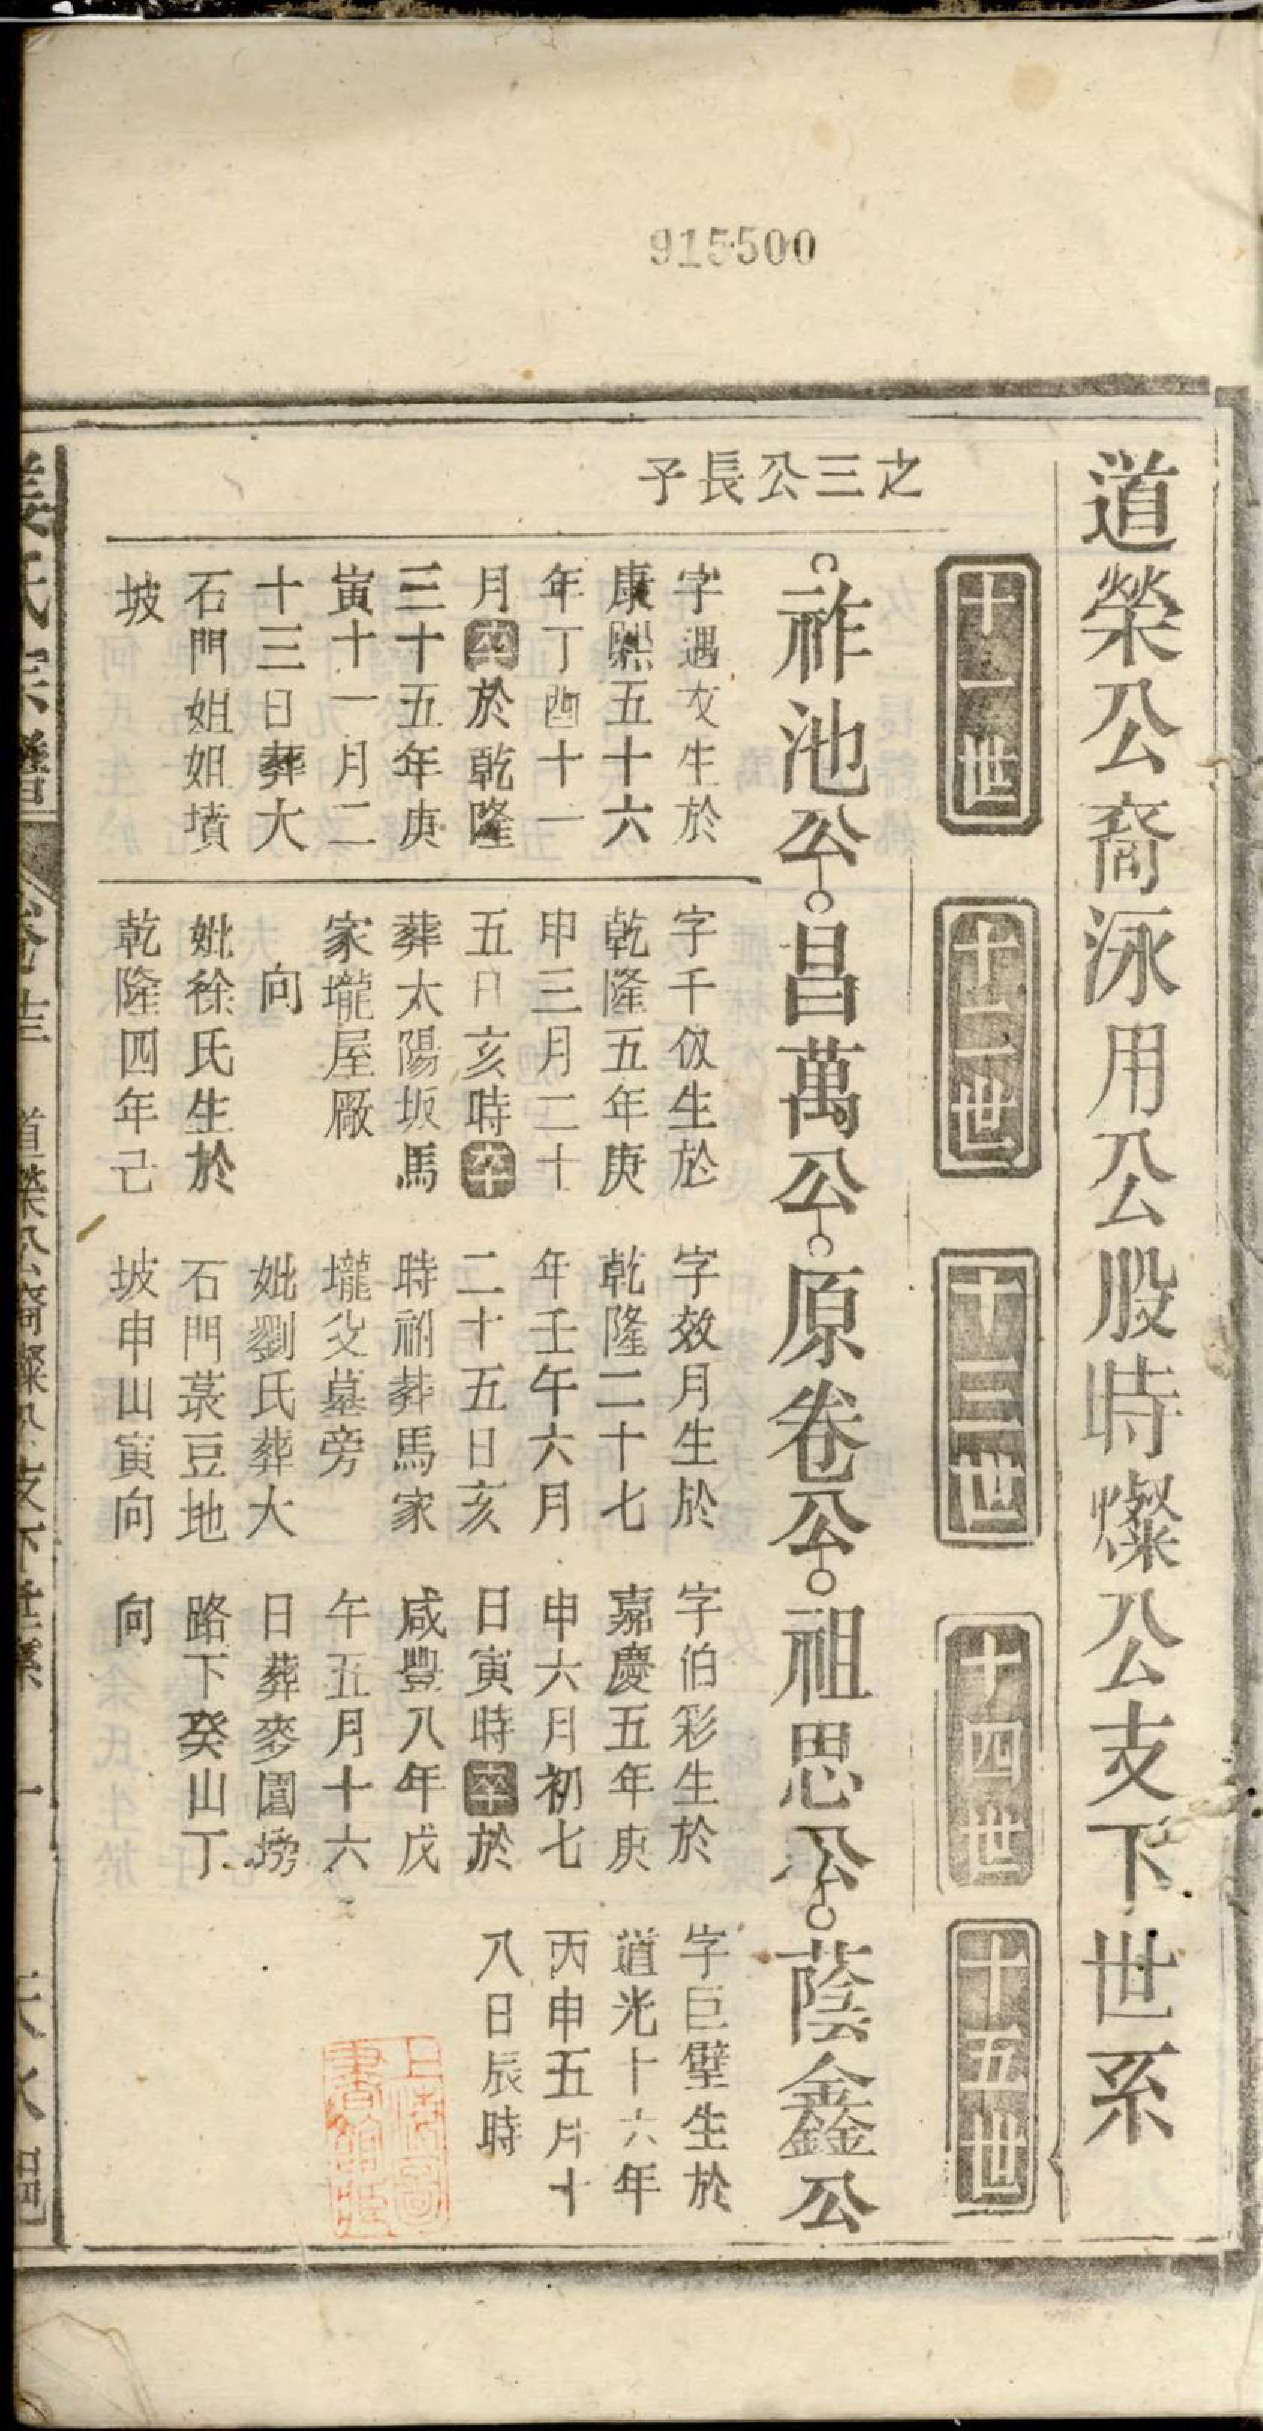 915500
道榮公裔泳用公股時燦公支下世系
十一世
十二世
十三世
十四世
十五世
之三公長子
祚池公
昌萬公
原卷公
祖思公
蔭鑫公
字遇文生於
康熙五十六
年丁酉十一
月卒於乾隆
三十五年庚
寅十一月二
十三日葬大
石門姐姐墳
坡
字千仭生於
乾隆五年庚
申三月二十
五日亥時卒
葬太陽坂馬
家壠屋厰
向
妣徐氏生於
乾隆四年己
字效月生於
乾隆二十七
年壬午六月
二十五日亥
時祔葬馬家
壠父墓旁
妣劉氏葬大
石門菉豆地
坡申山寅向
字伯彩生於
嘉慶五年庚
申六月初七
日寅時卒於
咸豐八年戊
午五月十六
日葬麥園塝
路下癸山丁
向
字巨璧生於
道光十六年
丙申五月十
八日辰時
上海圖
書館藏
姜氏宗譜
道榮公裔燦公支下世系
一
天水